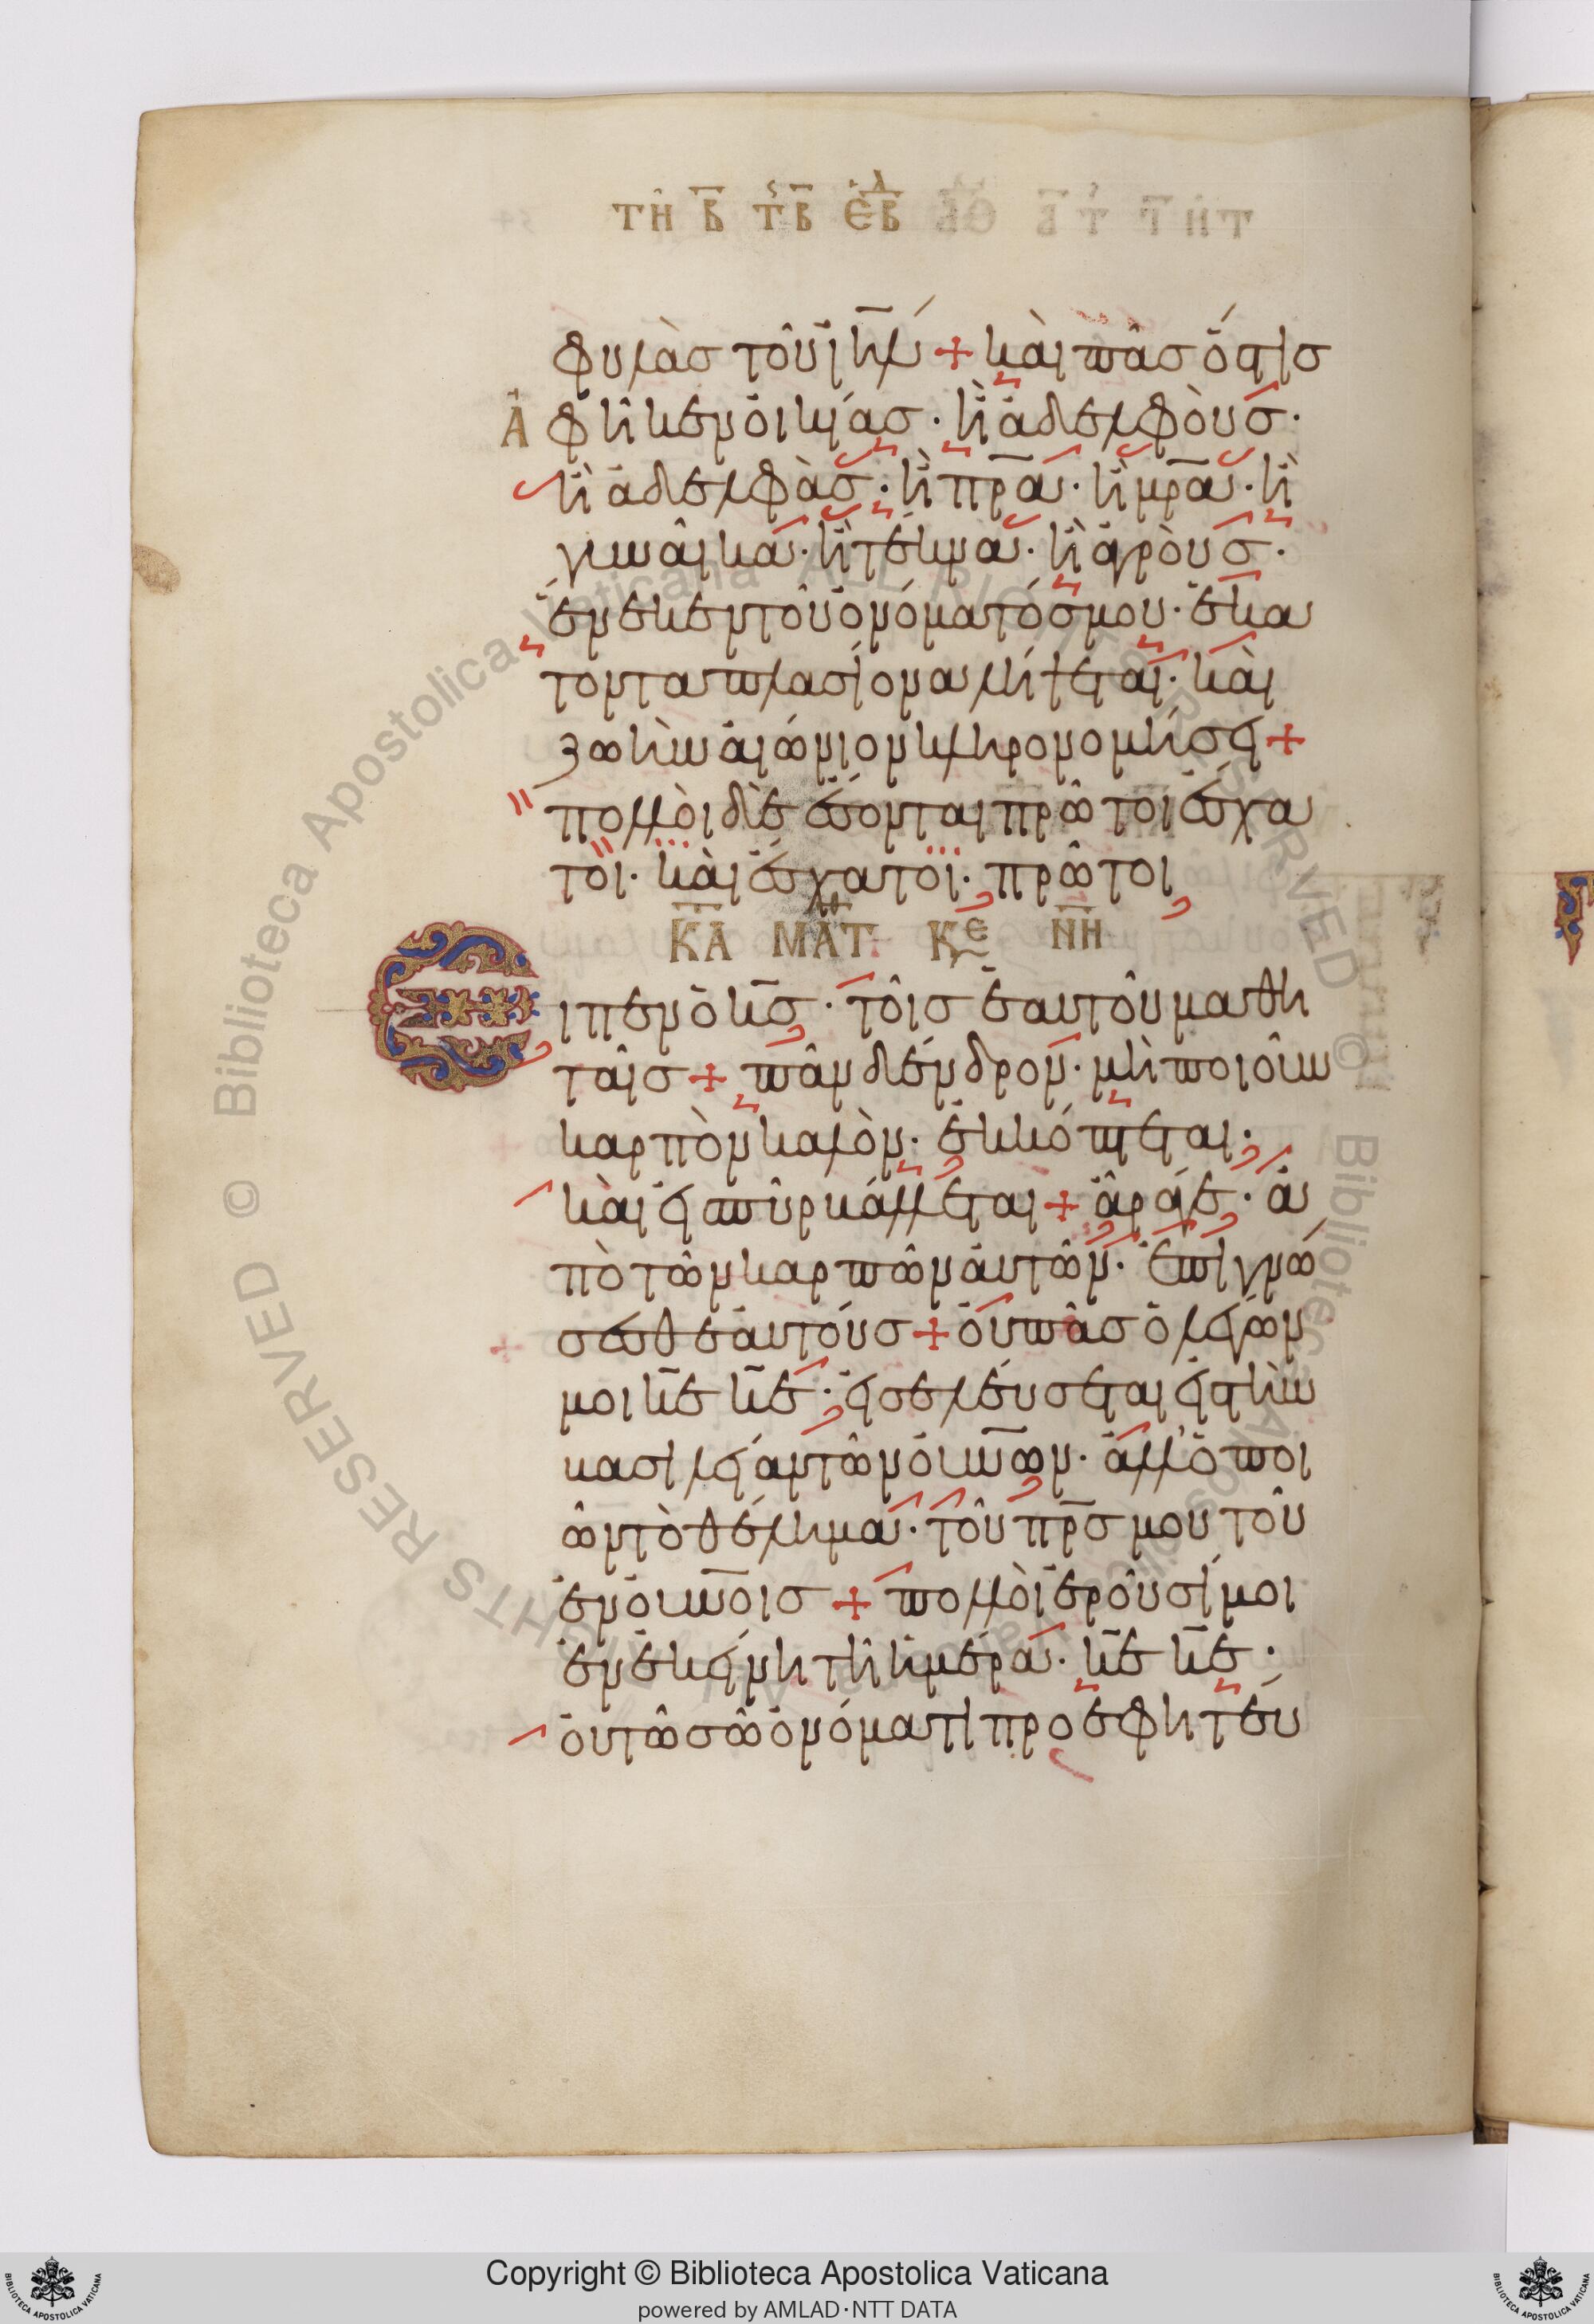 τῆ β̅ τ β̅ ἑβδ
φυλὰς τοῦ ι̅η̅λ̅ + καὶ πᾶς ὅστις
ἀφῆκεν οἰκίας · κ̀ ἀδελφοὺς ·
κ̀ ἀδελφὰς · κ̀ π̅ρ̅α̅ · κ̀ μ̅ρ̅α̅ · κ̀
γυναῖκα · κ̀ τέκνα · κ̀ ἀγροὺς ·
ἕνεκεν τοῦ ὀνόματός μου · ἑκα
τονταπλασίονα λήψεται · καὶ
ζωὴν αἰώνιον κληρονομήσει +
πολλοὶ δὲ ἔσονται πρῶτοι ἔσχα
τοι · καὶ ἔσχατοι · πρῶτοι
κ̅α̅ ματ κε ν̅η̅
Εἶπεν ὁ κ̅ς̅ · τοῖς ἑαυτοῦ μαθη
ταῖς + πᾶν δένδρον · μὴ ποιοῦν
καρπὸν καλὸν · ἐκκόπτεται ·
καὶ εἰς πῦρ βάλλεται + ἄρα γε · ἀ
πὸ τῶν καρπῶν αὐτῶν · ἐπιγνώ
σεσθε αὐτούς + οὐ πᾶς ὁ λέγων
μοι κ̅ε̅ κ̅ε̅ · εἰσελεύσεται εἰς τὴν
βασιλείαν τῶν ο̅υ̅ν̅ω̅ν̅ · ἀλλ' ὁ ποι
ῶν τὸ θέλημα · τοῦ π̅ρ̅ς̅ μου τοῦ
ἐν ο̅υ̅ν̅ο̅ι̅ς̅ + πολλοὶ ἐροῦσί μοι
ἐν ἐκείνη τῆ ἡμέρα · κ̅ε̅ κ̅ε̅ ·
οὐ τῶ σῶ ὀνόματι προεφητεύ
Copyright © Biblioteca Apostolica Vaticana
powered by AMLAD·NTT DATA